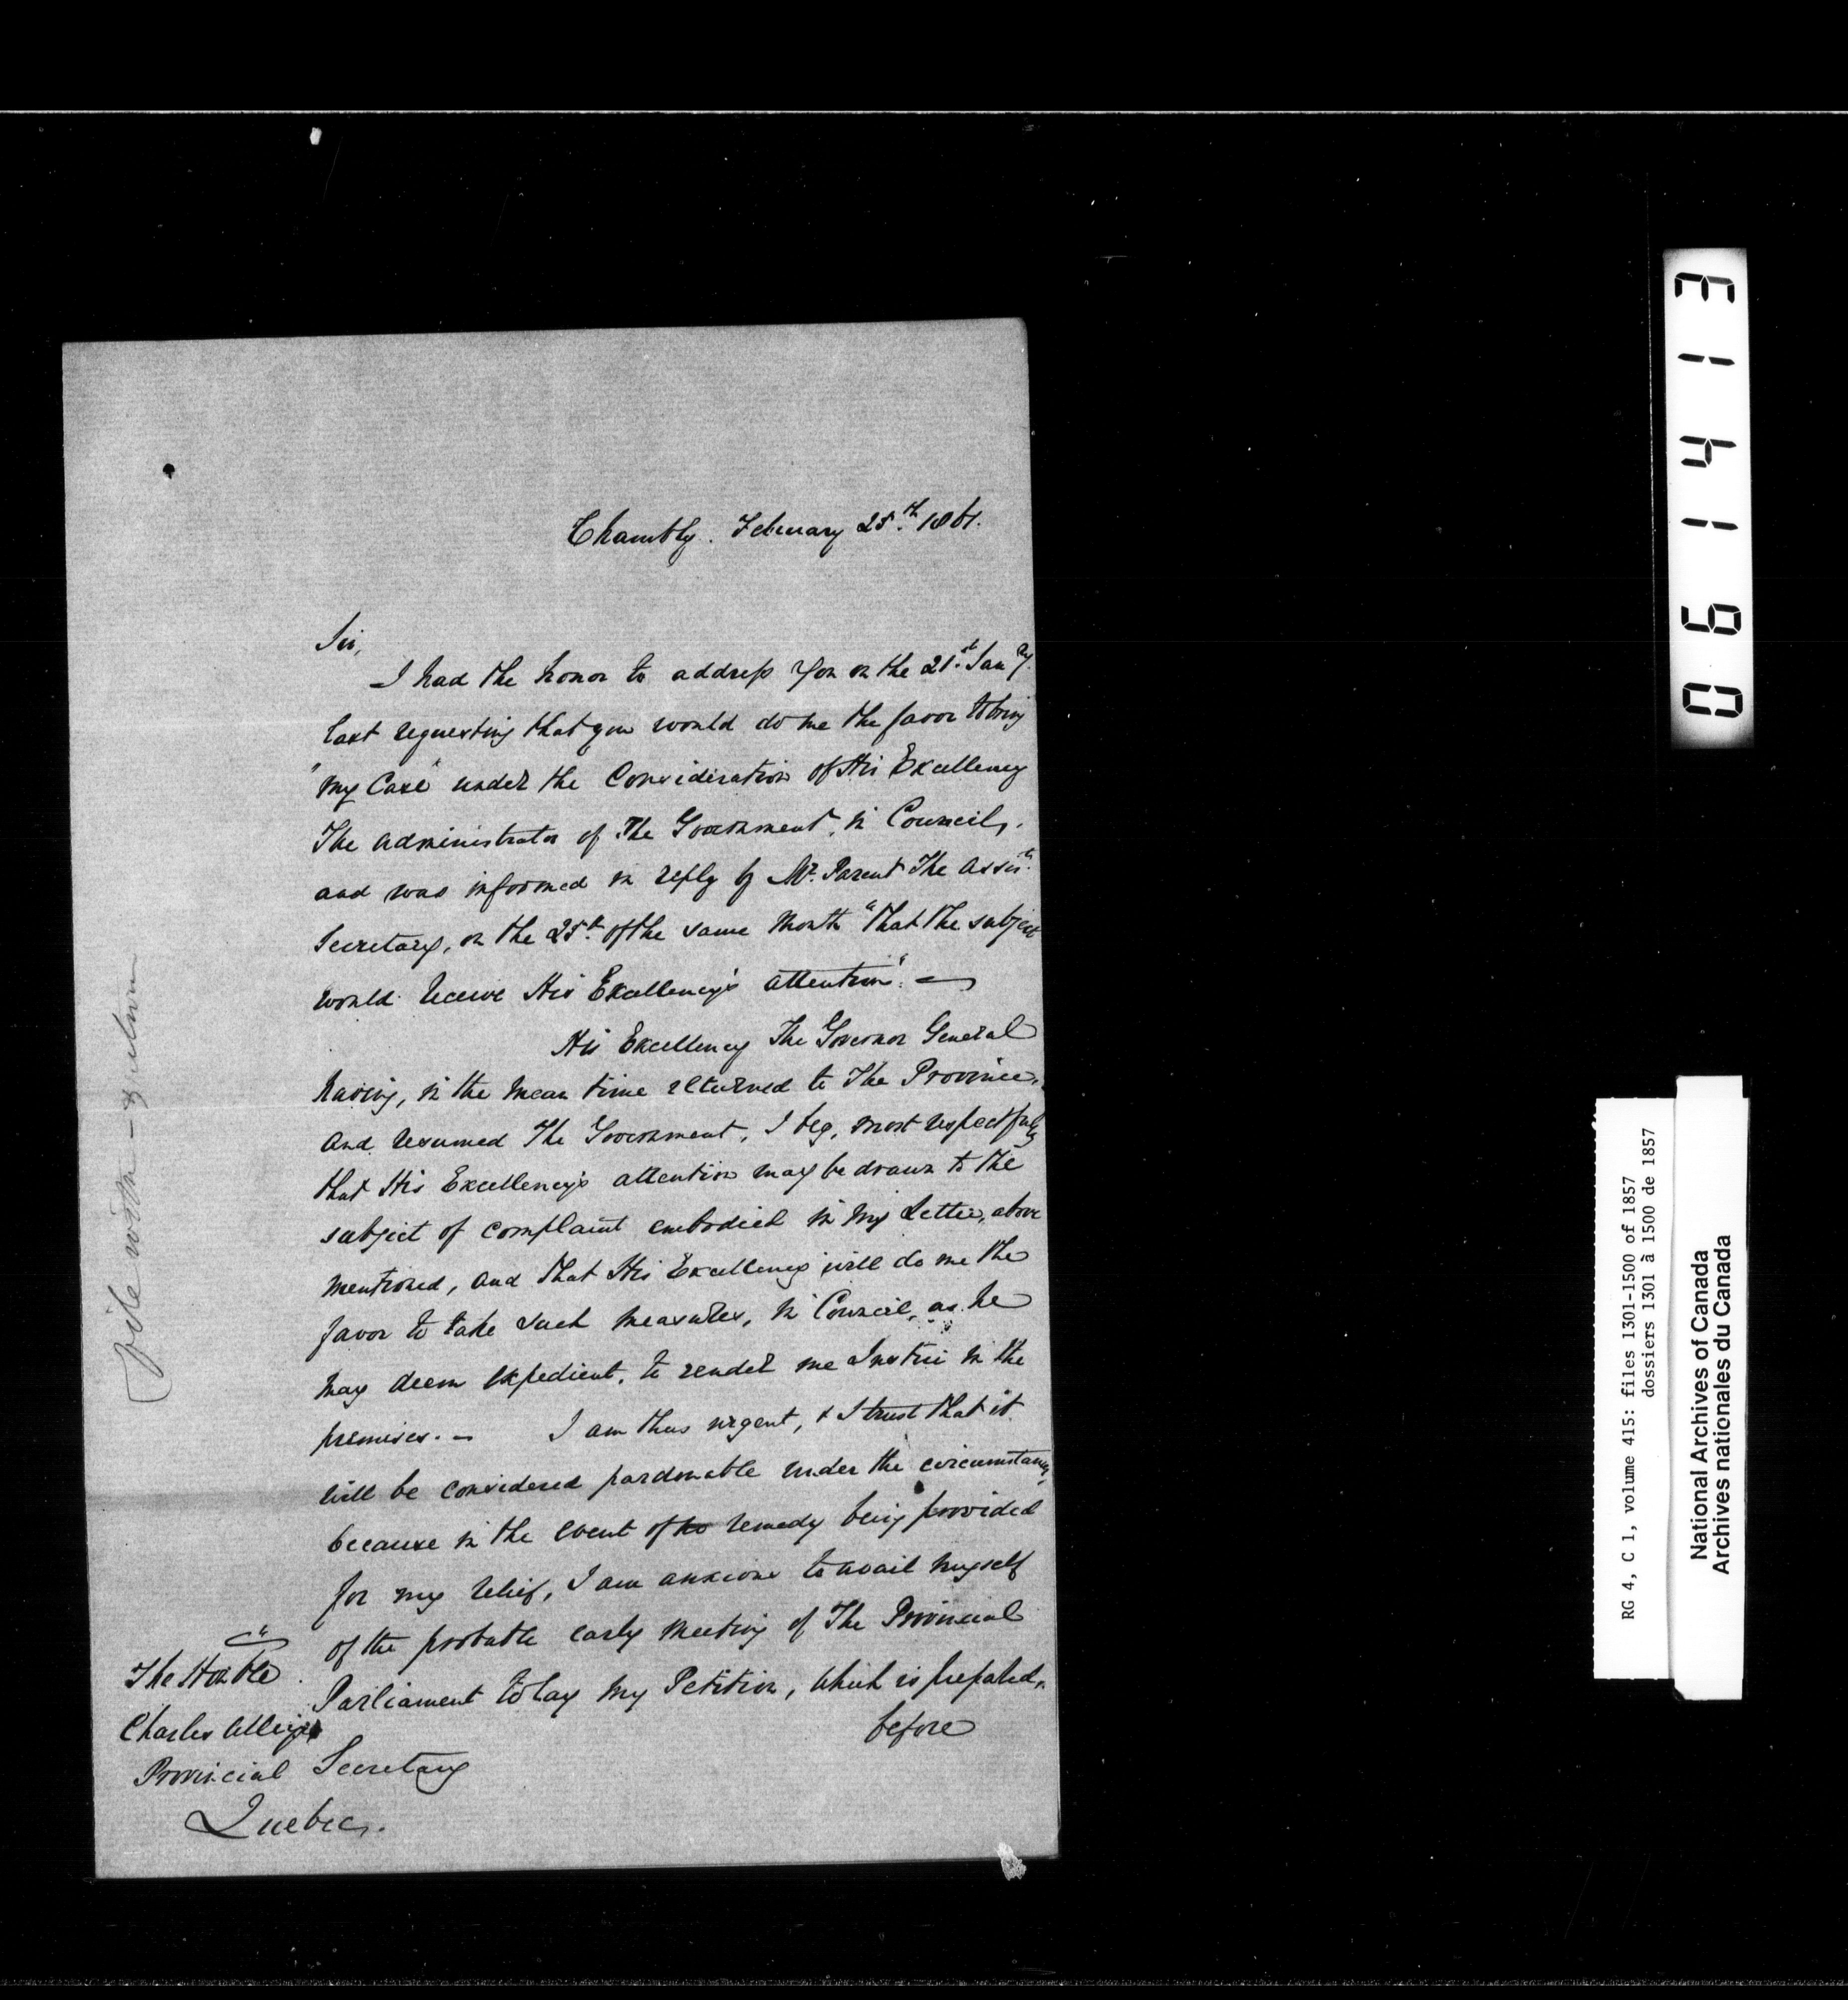 Chambly. February 25th 1861.
Sir,
I had the honor to address you on the 21st Jany.
last requesting that you would do me the favor to bring
"my Case" under the Consideration of His Excellency
The Administrator of The Government, in Council,
and was informed in reply by Mr. Parent The Assist.
Secretary, on the 25th of the same Month "that the subject
would receive His Excellency's attention". —
His Excellency The Governor General
having, in the mean time returned to The Province,
and resumed The Government, I beg, most respectfully
that His Excellency's attention may be drawn to the
subject of complaint embodied in my Letter, above
mentioned, and that His Excellency will do me the
favor to take such measures, in Council, as he
may deem expedient, to render me Justice in the
premises. — I am thus urgent, & I trust that it
will be considered pardonable under the circumstances,
because in the event of no remedy being provided
for my relief, I am anxious to avail myself
of the probable early meeting of The Provincial
Parliament to lay my Petition, which is prepared,
before
The Honble
Charles Alleyn
Provincial Secretary
Quebec.
file with — & return
06143
RG 4, C 1, volume 415: files 1301-1500 of 1857
dossiers 1301 à 1500 de 1857
National Archives of Canada
Archives nationales du Canada